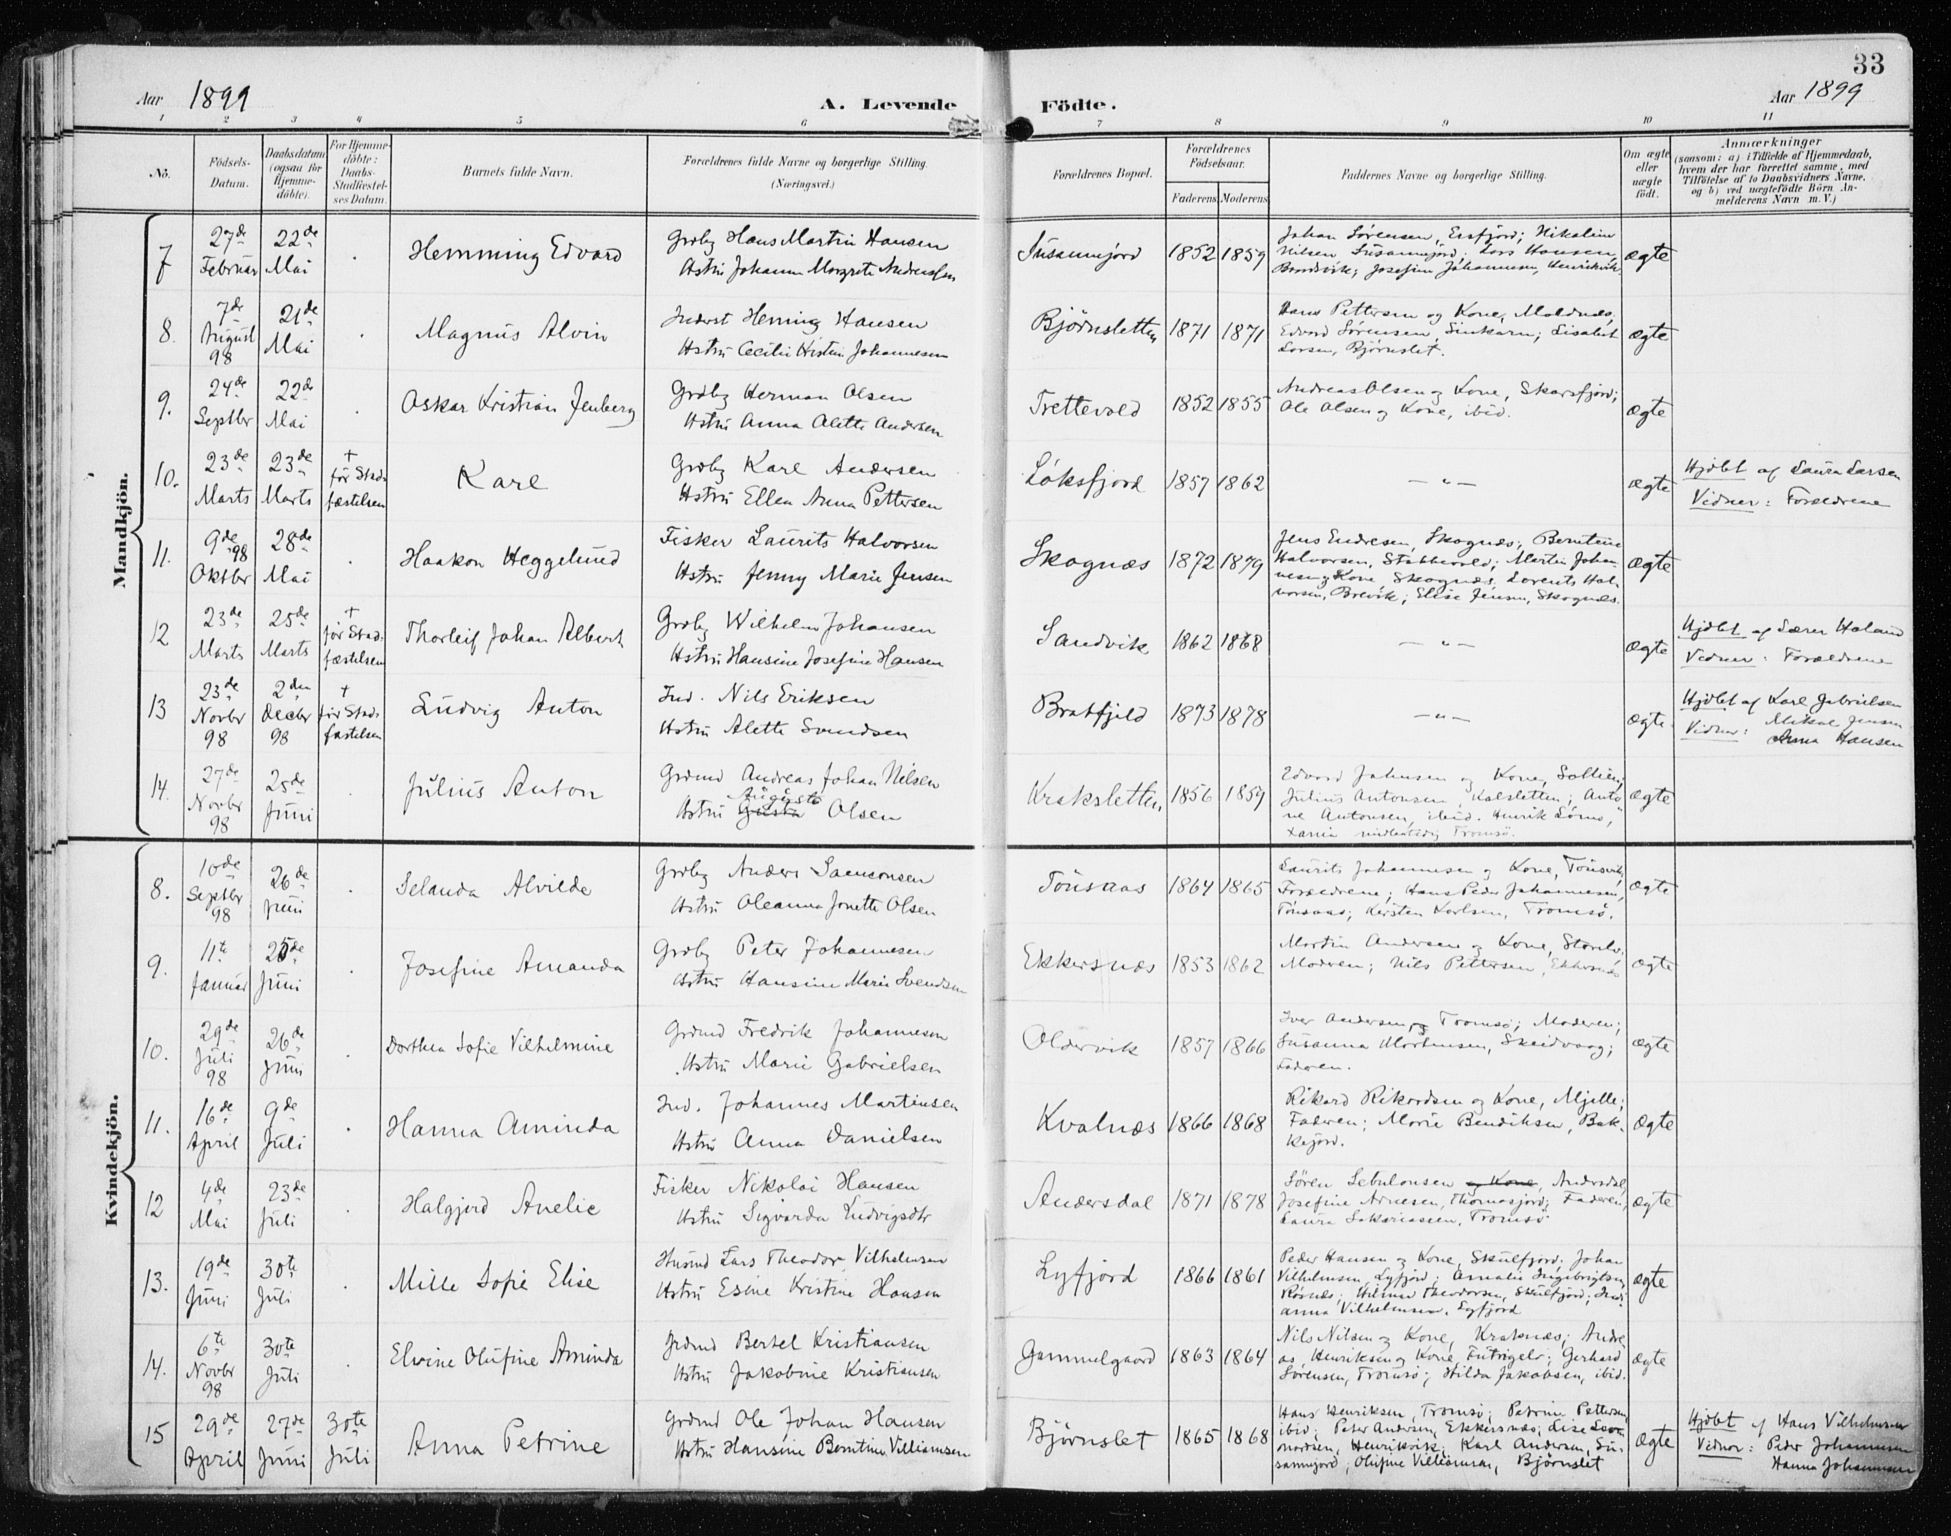 33
Aar 1899
A. Levende Fødte.
Aar 1899
1 2 3 4 5 6 7 8 9 10 11
Nö.
Födsels-Datum.
Daabsdatum (ogsaa for Hjemme-döbte).
For Hjemme-döbte: Daabs-Stadfæstel-ses Datum.
Barnets fulde Navn.
Forældrenes fulde Navne og borgerlige Stilling.
(Næringsvei.)
Forældrenes Bopæl.
Forældrenes Födselsaar.
Faderens Moderens
Faddernes Navne og borgerlige Stilling.
Om ægte eller uægte födt.
Anmærkninger
(saasom: a) i Tilfælde af Hjemmedaab, hvem der har forrettet samme, med Tilföielse af to Daabsvidners Navne, og b) ved uægtefödte Börn Anmelderens Navn m. V.)
Mandkjön.
7 27de Februar 22de Mai Hemming Edvard
Grdbr Hans Martin Hansen
Hstru Johanna Margrete Andreassen
Susannejord 1852 1859
Johan Sørensen, Ersfjord; Nikoline
Nilsen Susannejord; Lars Hansen,
Brandvik; Josefine Johannesen, Henrikvik
ægte
8. 7de August 98 21de Mai Magnus Alvin
Inderst Heming Hansen
Hstru Cecilie Kistin Johannesen
Bjørnsletten 1871 1871
Hans Pettersen og Kone, Moldnæs;
Edvard Sørensen, Sinkarn; Lisabet
Larsen, Bjørnslet.
ægte
9. 24de Septbr 22de Mai Oskar Kristian Jenberg
Grdbr Herman Olsen
Hstru Anna Alette Andersen
Trettevold 1852 1855
Andreas Olsen og Kone, Skarsfjord;
Ole Olsen og Kone, ibid.
ægte
10. 23de Marts 23de Marts + før Stadfæstelsen Karl
Grdbr Karl Andersen
Hstru Ellen Anna Pettersen
Løksfjord 1857 1862 — " — ægte
Hjdbt af Laura Larsen
Vidner: Forældrene
11. 9de 98 Oktbr 28de Mai Haakon Heggelund
Fisker Laurits Halvorsen
Hstru Jenny Marie Jensen
Skognæs 1872 1879
Jens Endresen, Skognæs; Berntine
Halvorsen, Stabbevold; Martin Johannesen
og Kone, Skognæs. Lorents Halvorsen,
Brevik; Elise Jensen, Skognæs.
ægte
12 23de Marts 25de Marts + før Stadfæstelsen Thorleif Johan Albert
Grdbr Wilhelm Johansen
Hstru Hansine Josefine Hansen
Sandvik 1862 1868 — " — ægte
Hjdbt af Søren Holand
Vidner: Forældrene
13 23de Novbr 98 2den Decbr 98 + før Stadfæstelsen Ludvig Anton
Ind. Nils Eriksen
Hstru Alette Svendsen
Bratfjeld 1873 1878 — " — ægte
Hjdbt af Karl Gabrielsen
Vidner: Mikal Jensen
Anna Hansen
14. 27de Novbr 98 25de Juni Julius Anton
Grdmd Andreas Johan Nilsen
Hstru Gusta Augusta Olsen
Kraksletten 1856 1859
Edvard Johnsen og Kone,
Julius Antonsen, Kalsletten;
Antonsen, ibid. Henrik
Tromsø.
ægte
Kvindekjön.
8. 10de Septbr 98 26de Juni Selanda Alvilde
Grdbr Anders Samonsen
Hstru Oleanna Jonette Olsen
Tønsaas 1864 1865
Laurits Johannesen og Kone, Tønsvik;
Forældrene; Hans Peder Johannesen,
Tønsaas; Kirsten Karlsen, Tromsø.
ægte
9. 11te Januar 25de Juni Josefine Amanda
Grdbr Peter Johannesen
Hstru Hansine Marie Svendsen
Ekkersnæs 1853 1862
Martin Andersen og Kone,
Moderen; Nils Pettersen, Ekkersnæs
ægte
10. 29de Juli 98 26de Juni Dorthea Sofie Vilhelmine
Grdmd Fredrik Johannesen
Hstru Marie Gabrielsen
Oldervik 1857 1866
Iver Andersen, Tromsø; Moderen;
Susanna Mortensen, Skeidvaag;
Faderen.
ægte
11. 16de April 9de Juli Hanna Aminda
Ind. Johannes Martinsen
Hstru Anna Danielsen
Kvalnæs 1866 1868
Rikard Rikardsen og Kone, Mjelle;
Faderen; Marie Bendiksen, Bakkejord.
ægte
12 4de Mai 23de Juli Halgjerd Anelie
Fisker Nikolai Hansen
Hstru Sigvarda Ludvigsdtr
Andersdal 1871 1878
Søren Sebulonsen og Kone, Andersdal,
Josefine Arnesen, Thomasjord; Faderen,
Laura Sakariassen, Tromsø
ægte
13. 19de Juni 30te Juli Mille Sofie Elise
Husmd Lars Theodor Vilhelmsen
Hstru Esine Kristine Hansen
Lyfjord 1866 1861
Peder Hansen og Kone, Skulfjord; Johan
Vilhelmsen, Lyfjord; Amalie Ingebrigtsen,
Røsnæs; Hilmar Theodorsen, Skulfjord; Indianna
Vilhelmsen, Lyfjord
ægte
14. 6te Novbr 98 30te Juli Elvine Olufine Aminda
Grdmd Bertel Kristiansen
Hstru Jakobine Kristiansen
Gammelgaard 1863 1864
Nils Nilsen og Kone, Kraknæs; Andreas
Henriksen og Kone, Futrigelv; Gerhard
Sørensen, Tromsø; Hilda Jakobsen, ibid.
ægte
15 29de April 27de Juni 30te Juli Anna Petrine
Grdmd Ole Johan Hansen
Hstru Hansine Berntine Villiamsen
Bjørnslet 1865 1868
Hans Henriksen, Tromsø; Petrine Pettersen,
ibid; Peter Andersen, Ekkersnæs; Lise Leonardsen,
Henrikvik; Karl Andersen, Susannejord;
Olufine Villiamsen, Bjørnslet
ægte
Hjdbt af Hans Vilhelmsen
Vidner: Peder Johannesen
Hanna Johannesen